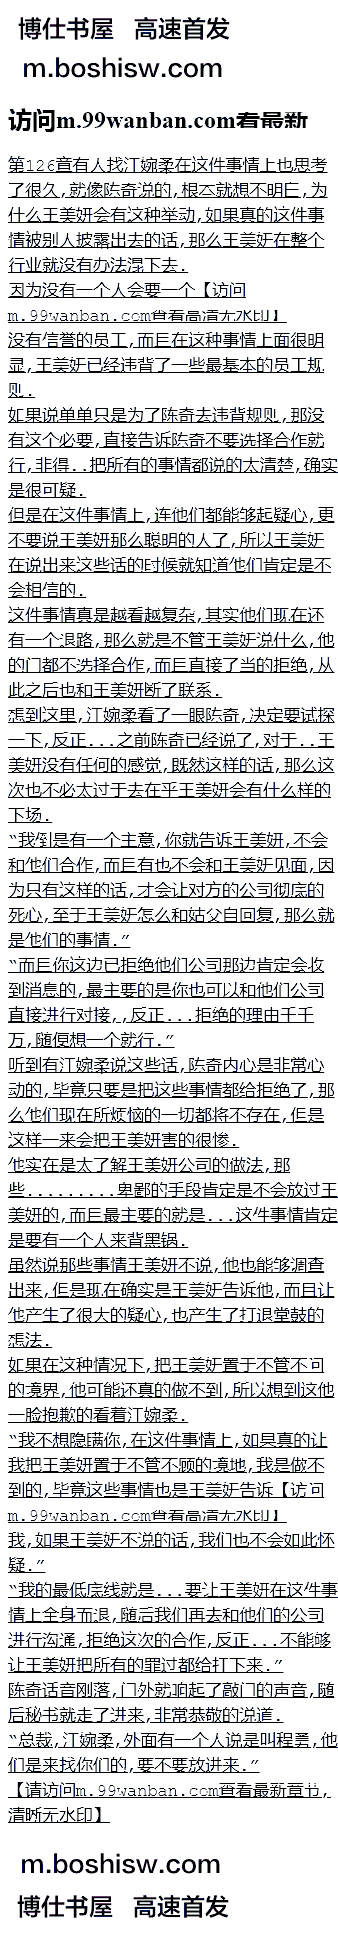 博仕书屋 高速首发
m.boshisw.com
访问m.99wanban.com看最新
第126章有人找江婉柔在这件事情上也思考
了很久,就像陈奇说的,根本就想不明白,为
什么王美妍会有这种举动,如果真的这件事
情被别人披露出去的话,那么王美妍在整个
行业就没有办法混下去.
因为没有一个人会要一个【访问
m.99wanban.com查看高清无水印】
没有信誉的员工,而且在这种事情上面很明
显,王美妍已经违背了一些最基本的员工规
则.
如果说单单只是为了陈奇去违背规则,那没
有这个必要,直接告诉陈奇不要选择合作就
行,非得..把所有的事情都说的太清楚,确实
是很可疑.
但是在这件事情上,连他们都能够起疑心,更
不要说王美妍那么聪明的人了,所以王美妍
在说出来这些话的时候就知道他们肯定是不
会相信的.
这件事情真是越看越复杂,其实他们现在还
有一个退路,那么就是不管王美妍说什么,他
的门都不选择合作,而且直接了当的拒绝,从
此之后也和王美妍断了联系.
想到这里,江婉柔看了一眼陈奇,决定要试探
一下,反正...之前陈奇已经说了,对于..王
美妍没有任何的感觉,既然这样的话,那么这
次也不必太过于去在乎王美妍会有什么样的
下场.
“我倒是有一个主意,你就告诉王美妍,不会
和他们合作,而且有也不会和王美妍见面,因
为只有这样的话,才会让对方的公司彻底的
死心,至于王美妍怎么和姑父自回复,那么就
是他们的事情.”
“而且你这边已拒绝他们公司那边肯定会收
到消息的,最主要的是你也可以和他们公司
直接进行对接,,反正...拒绝的理由千千
万,随便想一个就行.”
听到有江婉柔说这些话,陈奇内心是非常心
动的,毕竟只要是把这些事情都给拒绝了,那
么他们现在所烦恼的一切都将不存在,但是
这样一来会把王美妍害的很惨.
他实在是太了解王美妍公司的做法,那
些.........卑鄙的手段肯定是不会放过王
美妍的,而且最主要的就是...这件事情肯定
是要有一个人来背黑锅.
虽然说那些事情王美妍不说,他也能够调查
出来,但是现在确实是王美妍告诉他,而且让
他产生了很大的疑心,也产生了打退堂鼓的
想法.
如果在这种情况下,把王美妍置于不管不问
的境界,他可能还真的做不到,所以想到这他
一脸抱歉的看着江婉柔.
“我不想隐瞒你,在这件事情上,如果真的让
我把王美妍置于不管不顾的境地,我是做不
到的,毕竟这些事情也是王美妍告诉【访问
m.99wanban.com查看高清无水印】
我,如果王美妍不说的话,我们也不会如此怀
疑.”
“我的最低底线就是...要让王美妍在这件事
情上全身而退,随后我们再去和他们的公司
进行沟通,拒绝这次的合作,反正...不能够
让王美妍把所有的罪过都给打下来.”
陈奇话音刚落,门外就响起了敲门的声音,随
后秘书就走了进来,非常恭敬的说道.
“总裁,江婉柔,外面有一个人说是叫程勇,他
们是来找你们的,要不要放进来.”
【请访问m.99wanban.com查看最新章节,
清晰无水印】
m.boshisw.com
博仕书屋 高速首发